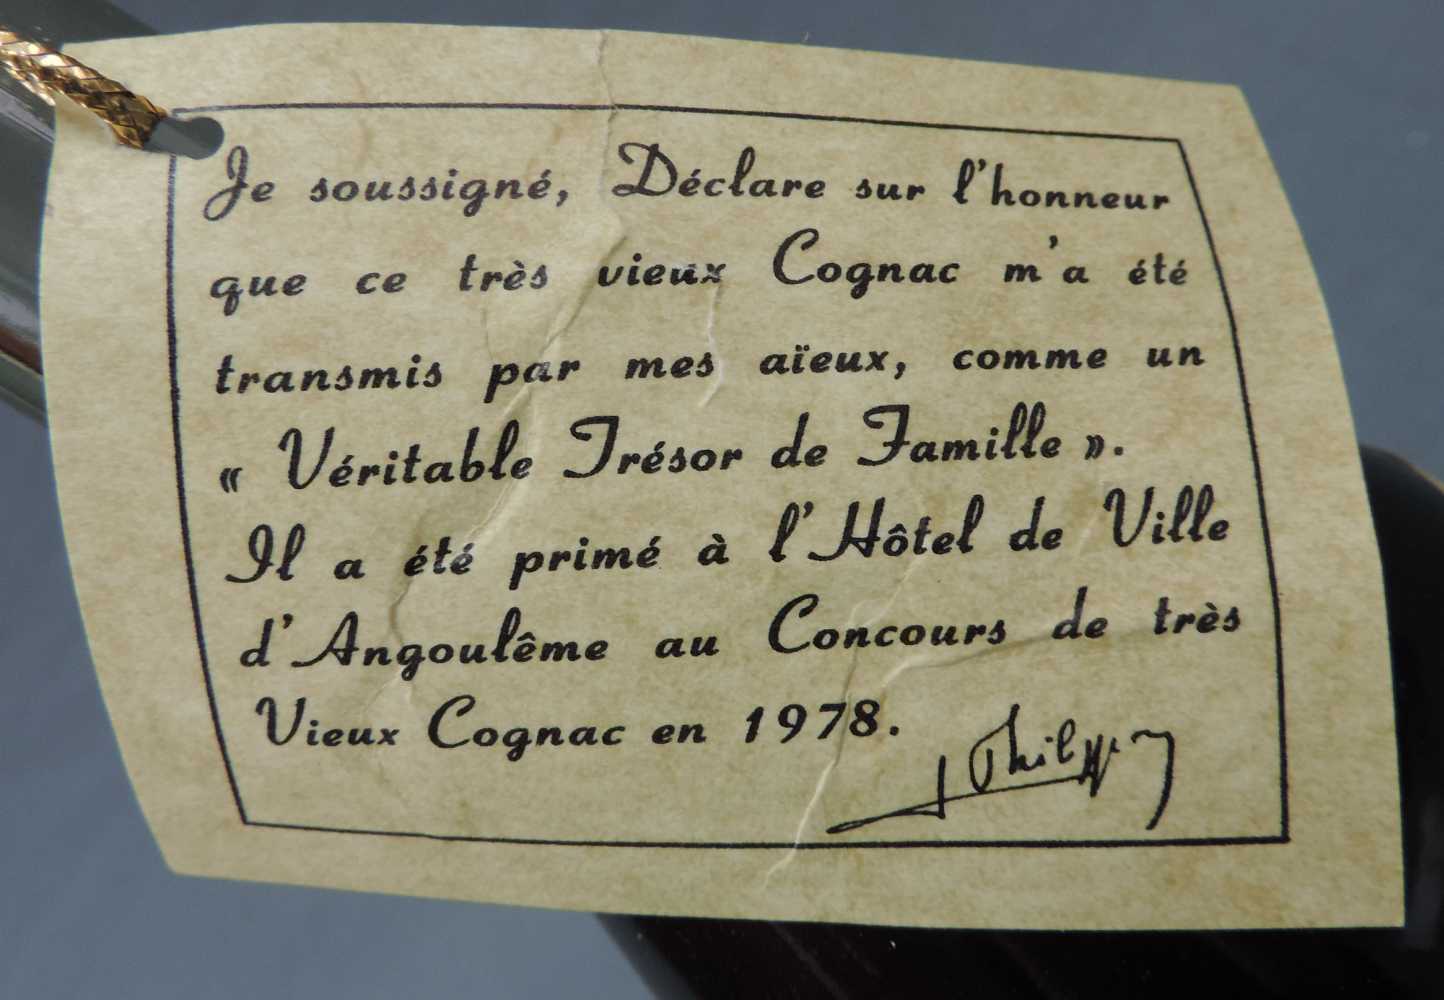 Je soussigné, Déclare sur l'honneur
que ce très vieux Cognac m'a été
transmis par mes aïeux, comme un
« Véritable Trésor de Famille ».
Il a été primé à l'Hôtel de Ville
d'Angoulême au Concours de très
Vieux Cognac en 1978.